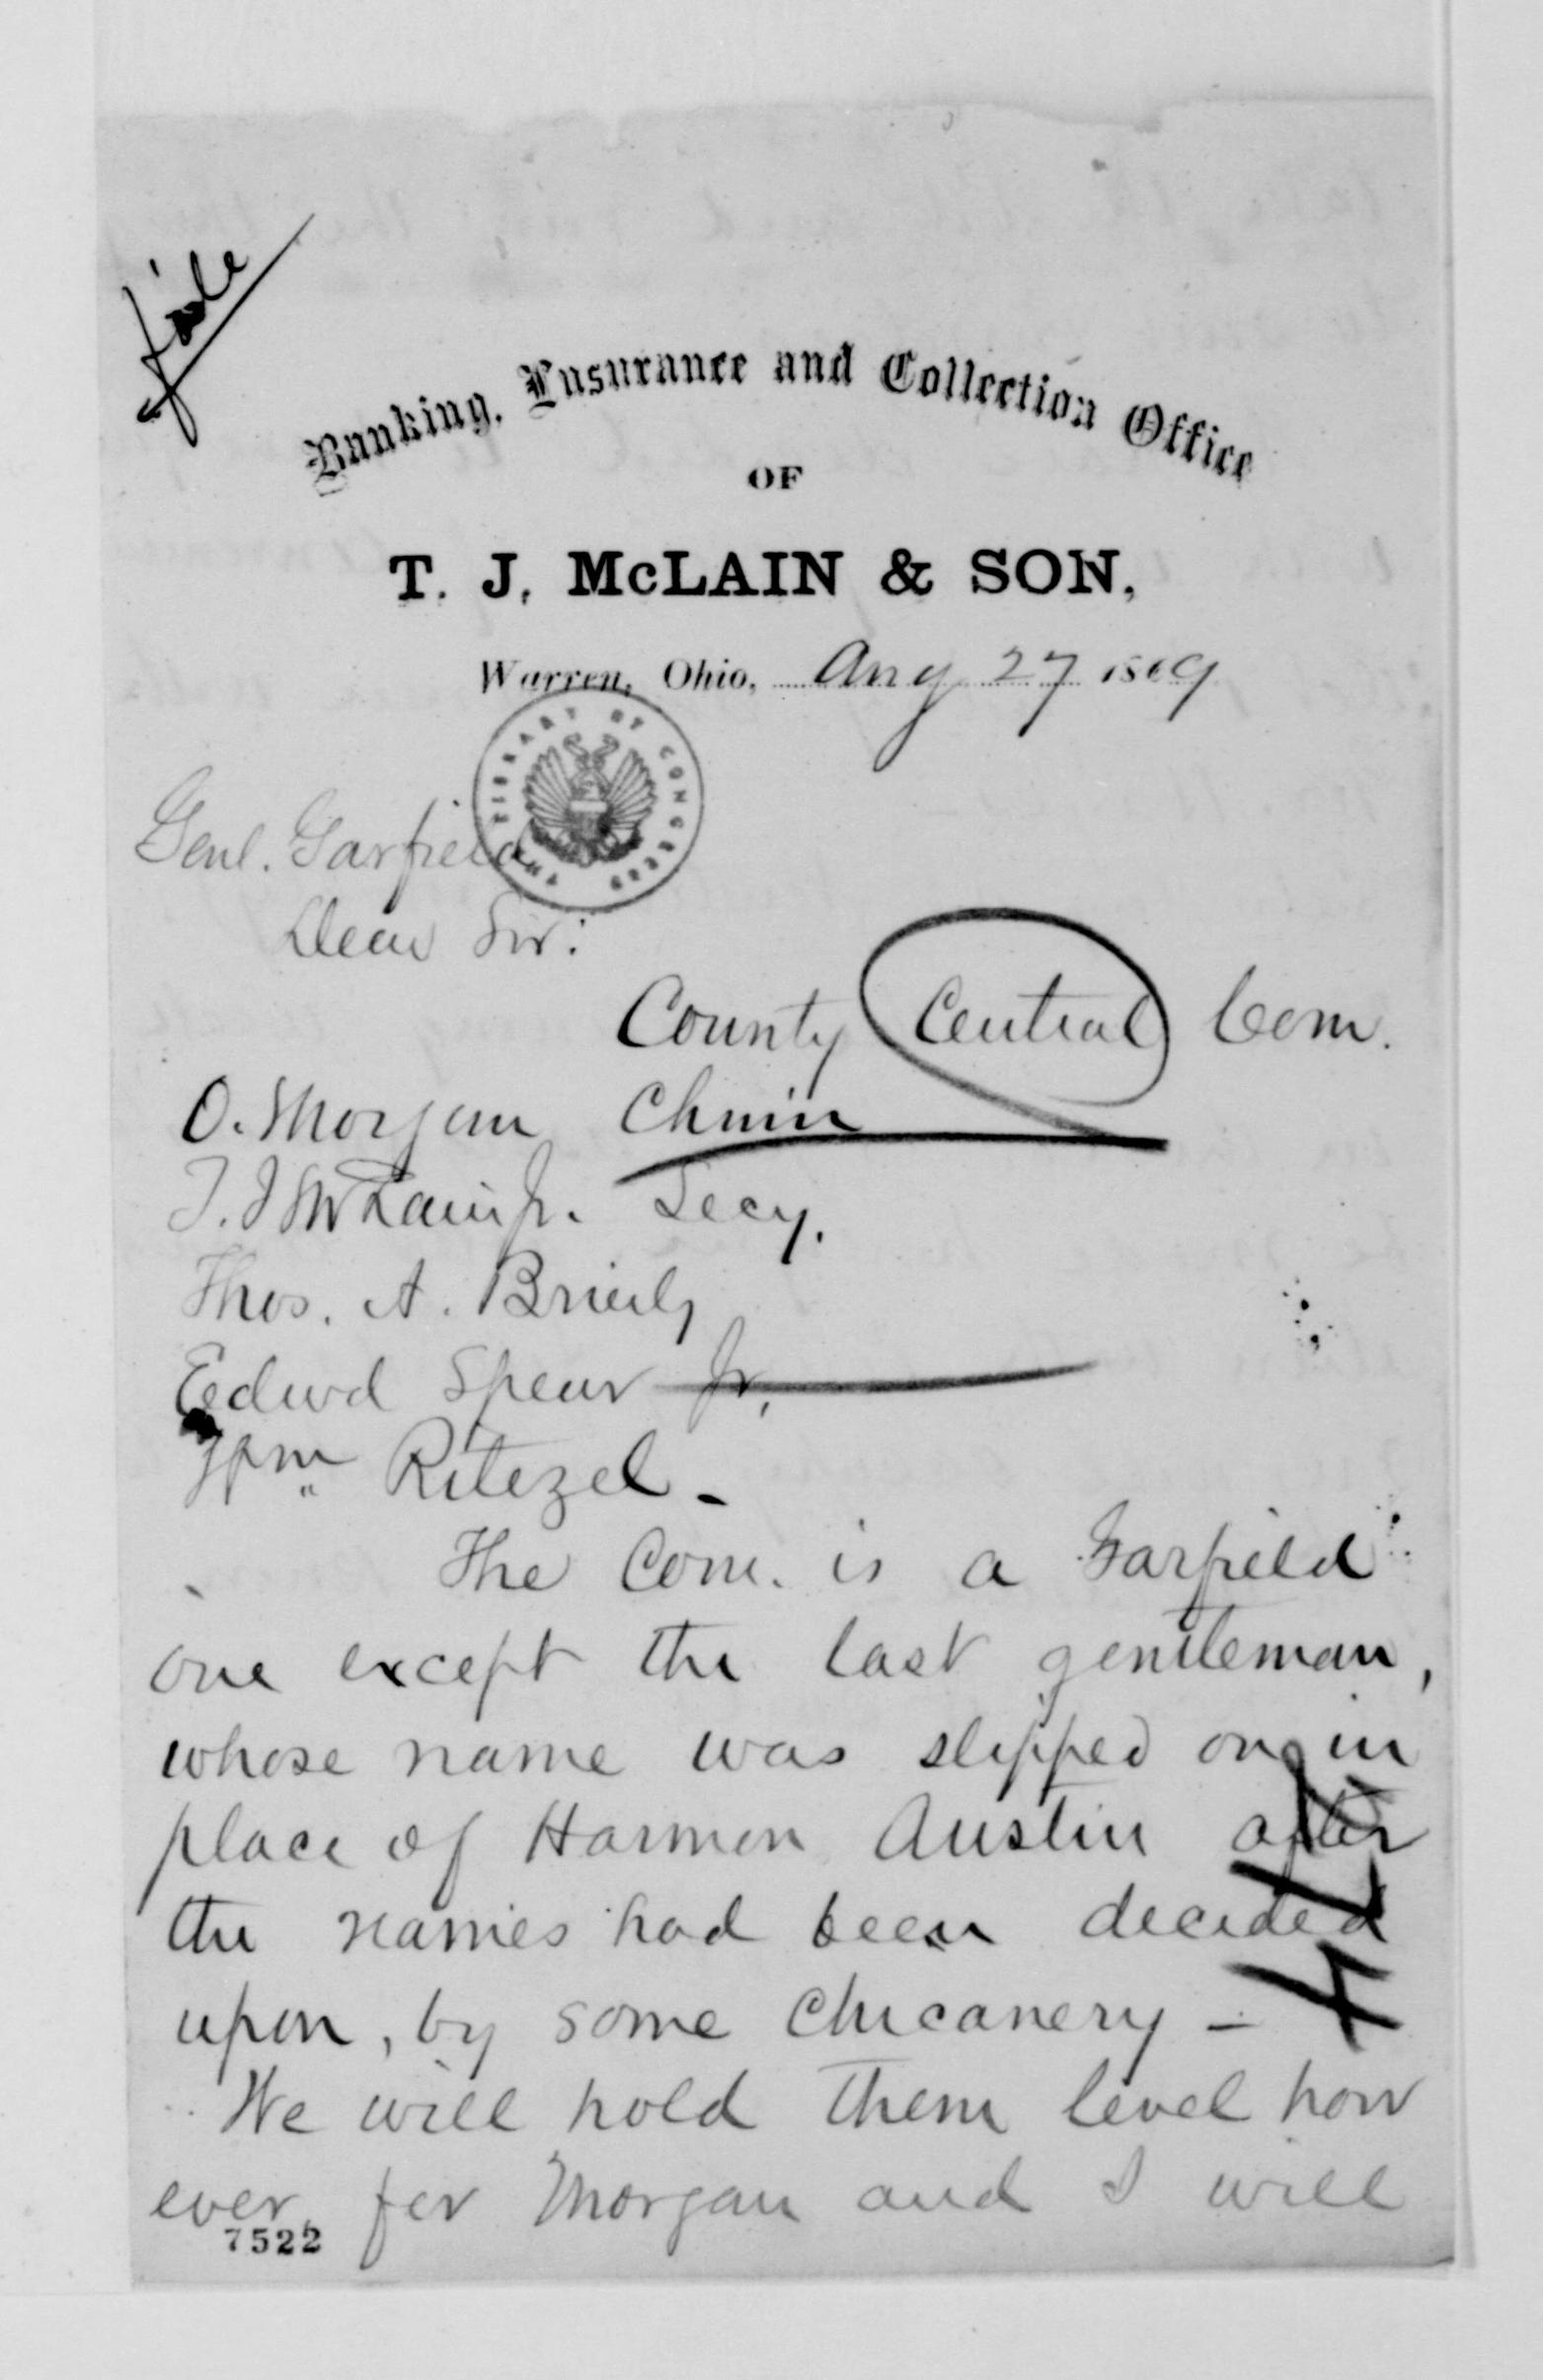 file
Banking, Insurance and Collection Office
OF
T. J. McLAIN & SON,
Warren, Ohio, Aug 27 1869
THE LIBRARY OF CONGRESS
Genl. Garfield
Dear Sir:
County Central Com.
O. Morgan Chmn
T. J. McLain Jr. Secy.
Thos. A. Brierly
Edwd Spear Jr,
Wm Ritezel -
The Com. is a Garfield
one except the last gentleman,
whose name was slipped on in
place of Harmon Austin after
the names had been decided
upon, by some chicanery -
We will hold them level how
ever, for Morgan and I will
7522